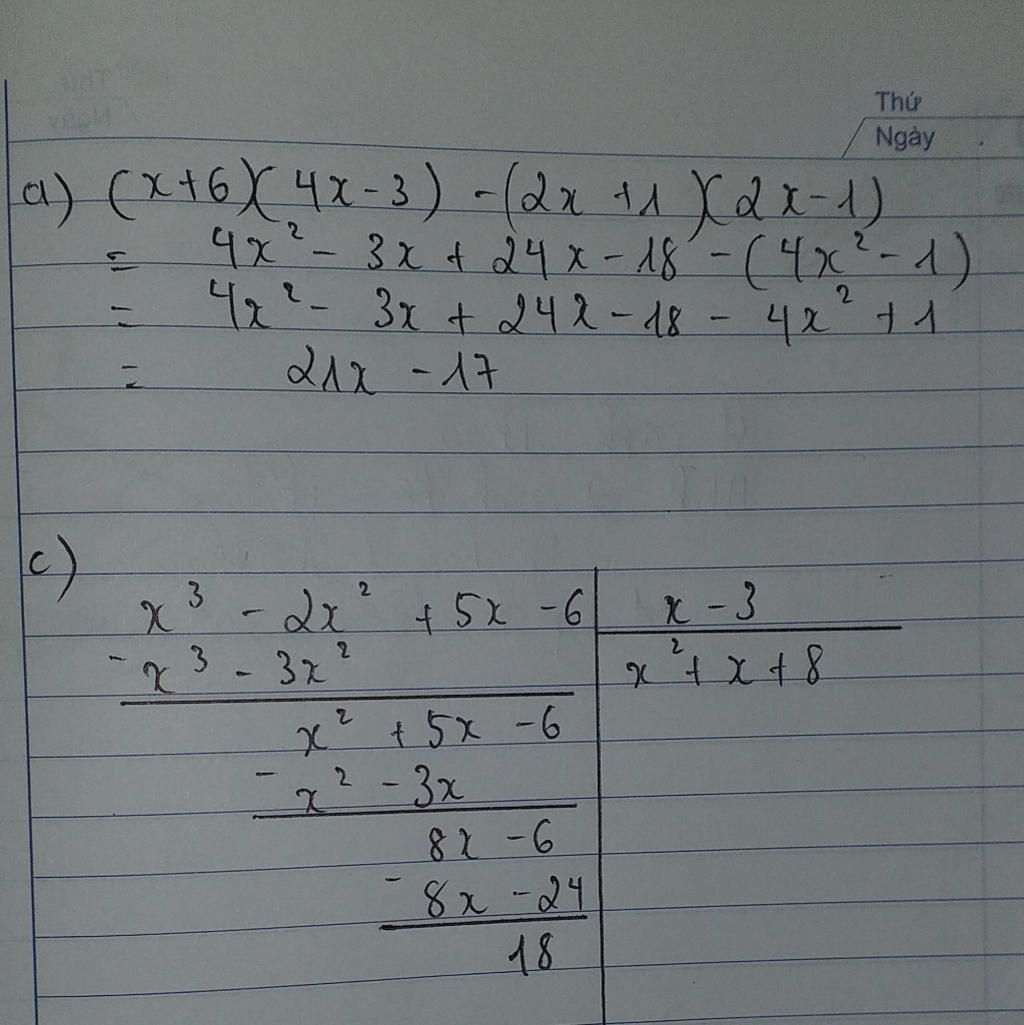 Thứ
Ngày
a) (x+6)(4x-3) -(2x +1)(2x-1)
= 4x² - 3x + 24x - 18 - (4x² - 1)
= 4x² - 3x + 24x - 18 - 4x² + 1
= 21x - 17
c)
x³ - 2x² + 5x - 6 | x - 3
- x³ - 3x² | x² + x + 8
x² + 5x - 6
- x² - 3x
8x - 6
- 8x - 24
18